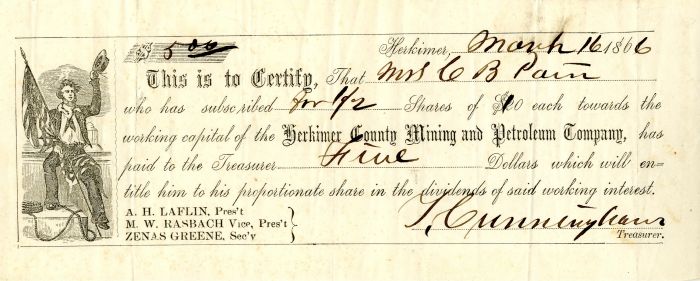 $ 5.00
Herkimer, March 16 1866
This is to Certify, That Mrs C B Pain
who has subscribed for 1/2 Shares of $10 each towards the
working capital of the Herkimer County Mining and Petroleum Company, has
paid to the Treasurer Five Dollars which will en-
title him to his proportionate share in the dividends of said working interest.
A. H. LAFLIN, Pres't
M. W. RASBACH Vice, Pres't
ZENAS GREENE, Sec'y
Cunningham
Treasurer.